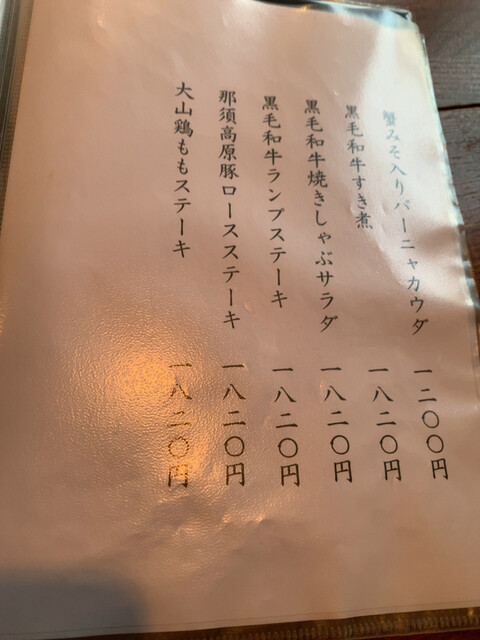 蟹みそ入りバーニャカウダ 一二〇〇円
黒毛和牛すき煮 一八二〇円
黒毛和牛焼きしゃぶサラダ 一八二〇円
黒毛和牛ランプステーキ 一八二〇円
那須高原豚ロースステーキ 一八二〇円
大山鶏ももステーキ 一八二〇円